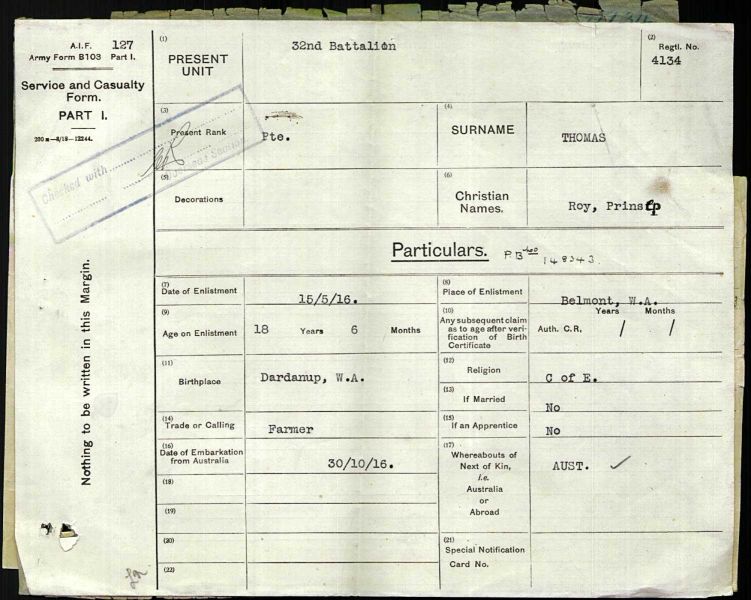 A.I.F. 127
Army Form B103 Part I.
Service and Casualty
Form.
PART I.
200 m—8/18—12244.
Checked with
Nothing to be written in this Margin.
(1)
PRESENT
UNIT
32nd Battalion
(2)
Regtl. No.
4134
(3)
Present Rank
Pte.
(4)
SURNAME
THOMAS
(5)
Decorations
(6)
Christian
Names.
Roy, Prinsep
Particulars.
P.B. 148343.
(7)
Date of Enlistment
15/5/16.
(8)
Place of Enlistment
Belmont, W.A.
(9)
Age on Enlistment
18 Years 6 Months
(10)
Any subsequent claim
as to age after veri-
fication of Birth
Certificate
Years Months
Auth. C.R. / /
(11)
Birthplace
Dardanup, W.A.
(12)
Religion
C of E.
(13)
If Married
No
(14)
Trade or Calling
Farmer
(15)
If an Apprentice
No
(16)
Date of Embarkation
from Australia
30/10/16.
(17)
Whereabouts of
Next of Kin,
i.e.
Australia
or
Abroad
AUST. ✓
(18)
(19)
(20)
(21)
Special Notification
Card No.
(22)